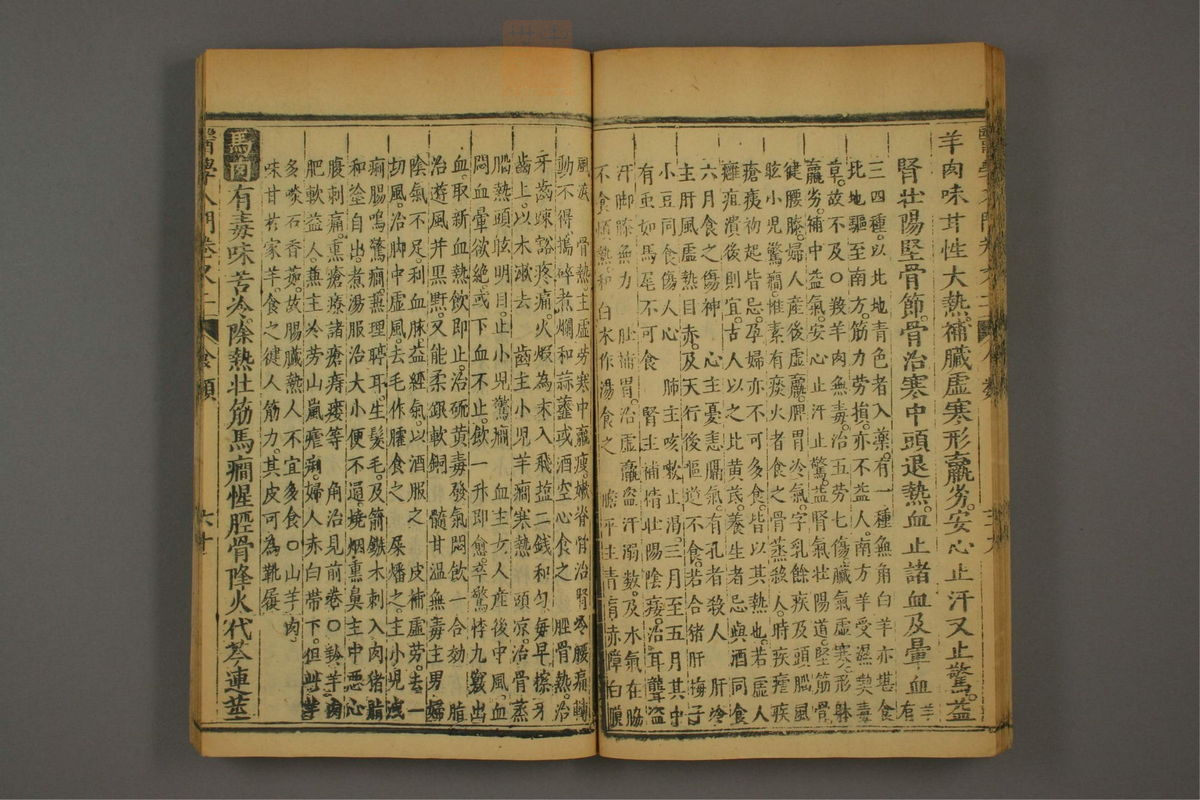 羊肉味甘性大熱補臟虛寒形羸劣安心止汗又止驚益
腎壯陽堅骨節骨治寒中頭退熱血止諸血及暈血羊有
三四種以此地青色者入藥有一種無角白羊亦堪食
比地驅至南方筋力勞損亦不益人南方羊受濕𮈔毒
草故不及○羖羊肉無毒治五勞七傷臟氣虛寒形躰
羸劣補中益氣安心止汗止驚益腎氣壯陽道堅筋骨
健腰膝婦人產後虛羸脾胃冷氣字乳餘疾及頭腦風
眩小兒驚癇惟素有痰火者食之蒸殺人時疾瘧疾
瘡痍初起皆忌孕婦亦不可多食皆以其熱也若虛人
癰疽潰後則宜古人以之比黃芪養生者忌與酒同食
六月食之傷神　心主憂恚膈氣有孔者殺人　肝冷
主肝風虛熱目赤及天行後嘔逆不食若合猪肝梅子
小豆同食傷人心　肺主咳嗽止渴三月至五月其中
有虫如馬尾不可食　腎主補精壯陽陰痿治耳聾盜
汗脚膝無力　肚補胃治虛羸盜汗溺數及水氣在脇
不食煩熱和白朮作湯食之　膽平主青盲赤障白膜
風淚　骨熱主虛勞寒中羸瘦嫩脊骨治腎冷腰痛轉
動不得搗碎煮爛和蒜薤或酒空心食之　脛骨熱治
牙齒疎豁疼痛火煅為末入飛塩二錢和勻每早擦牙
齒上以木漱去　齒主小兒羊癎寒熱　頭凉治骨蒸
腦熱頭眩明目止小兒驚癎　血主女人產後中風血
悶血暈欲絶或下血不止飲一升即愈卒驚悸九竅出
血取新血熱飲即止治硫黃毒發氣悶飲一合効　脂
治遊風并黑䵟又能柔銀軟銅　髓甘温無毒主男婦
陰氣不足利血脉益經氣以酒服之　皮補虛勞去一
切風治脚中虛風去毛作臛食之　屎燔之主小兒洩
痢腸鳴驚癎燕理聤耳生髮毛及箭鏃木刺入肉猪脂
和塗自出煮湯服治大小便不通燒烟熏鼻主中惡心
腹刺痛熏瘡療諸瘡痔瘻等　角治見前卷○羚羊肉
肥軟益人兼主冷勞山嵐瘧痢婦人赤白帶下但此
多啖石香薷故腸臟熱人不宜多食○山羊肉
味甘於家羊食之健人筋力其皮可為靴屐
馬肉有毒味苦冷除熱壯筋馬癎惺脛骨降火代芩連莖